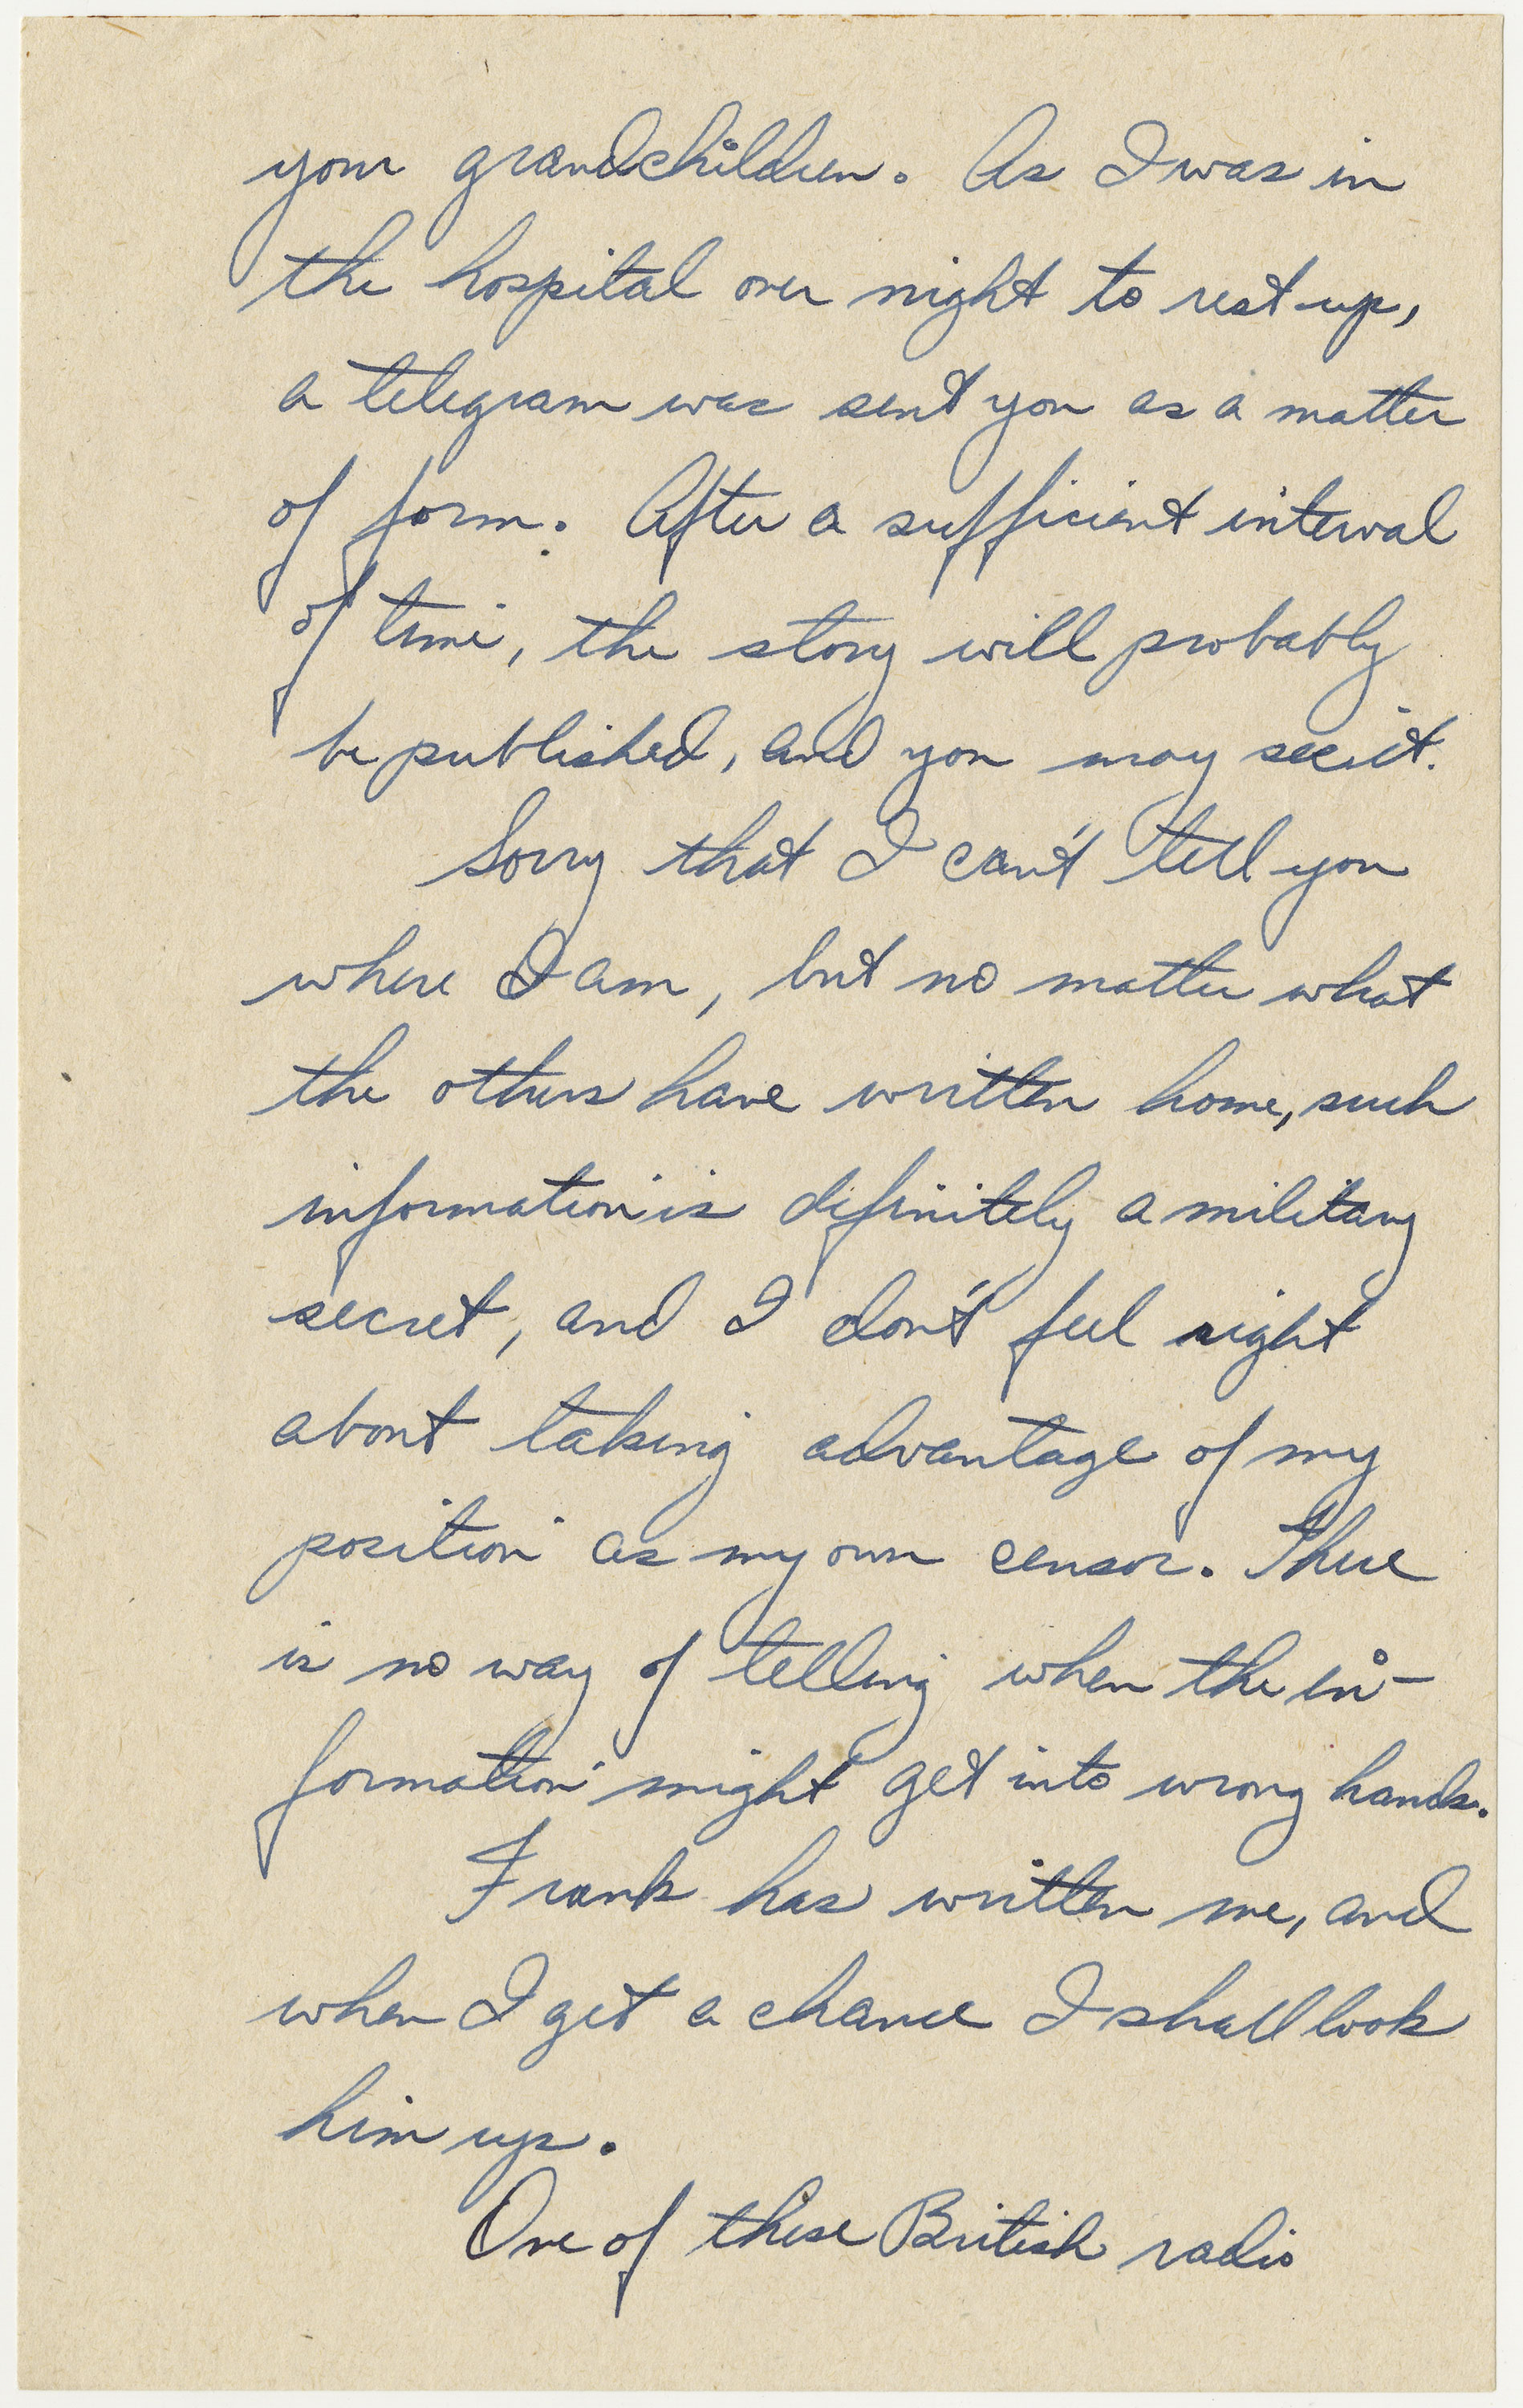 your grandchildren. As I was in
the hospital over night to rest up,
a telegram was sent you as a matter
of form. After a sufficient interval
of time, the story will probably
be published, and you may see it.
Sorry that I can't tell you
where I am, but no matter what
the others have written home, such
information is definitely a military
secret, and I don't feel right
about taking advantage of my
position as my own censor. There
is no way of telling when the in-
formation might get into wrong hands.
Frank has written me, and
when I get a chance I shall look
him up.
One of these British radio